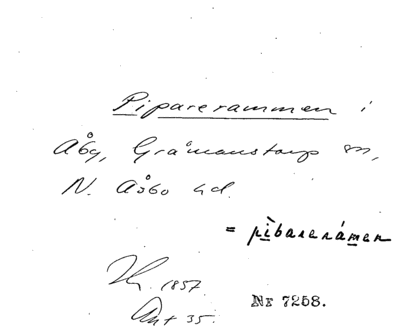 Piparerammen i
Åby, Gråmanstorp sn,
N. Åsbo hd.
= pìbarerámen
1857.
Ant 35.
Nr 7258.